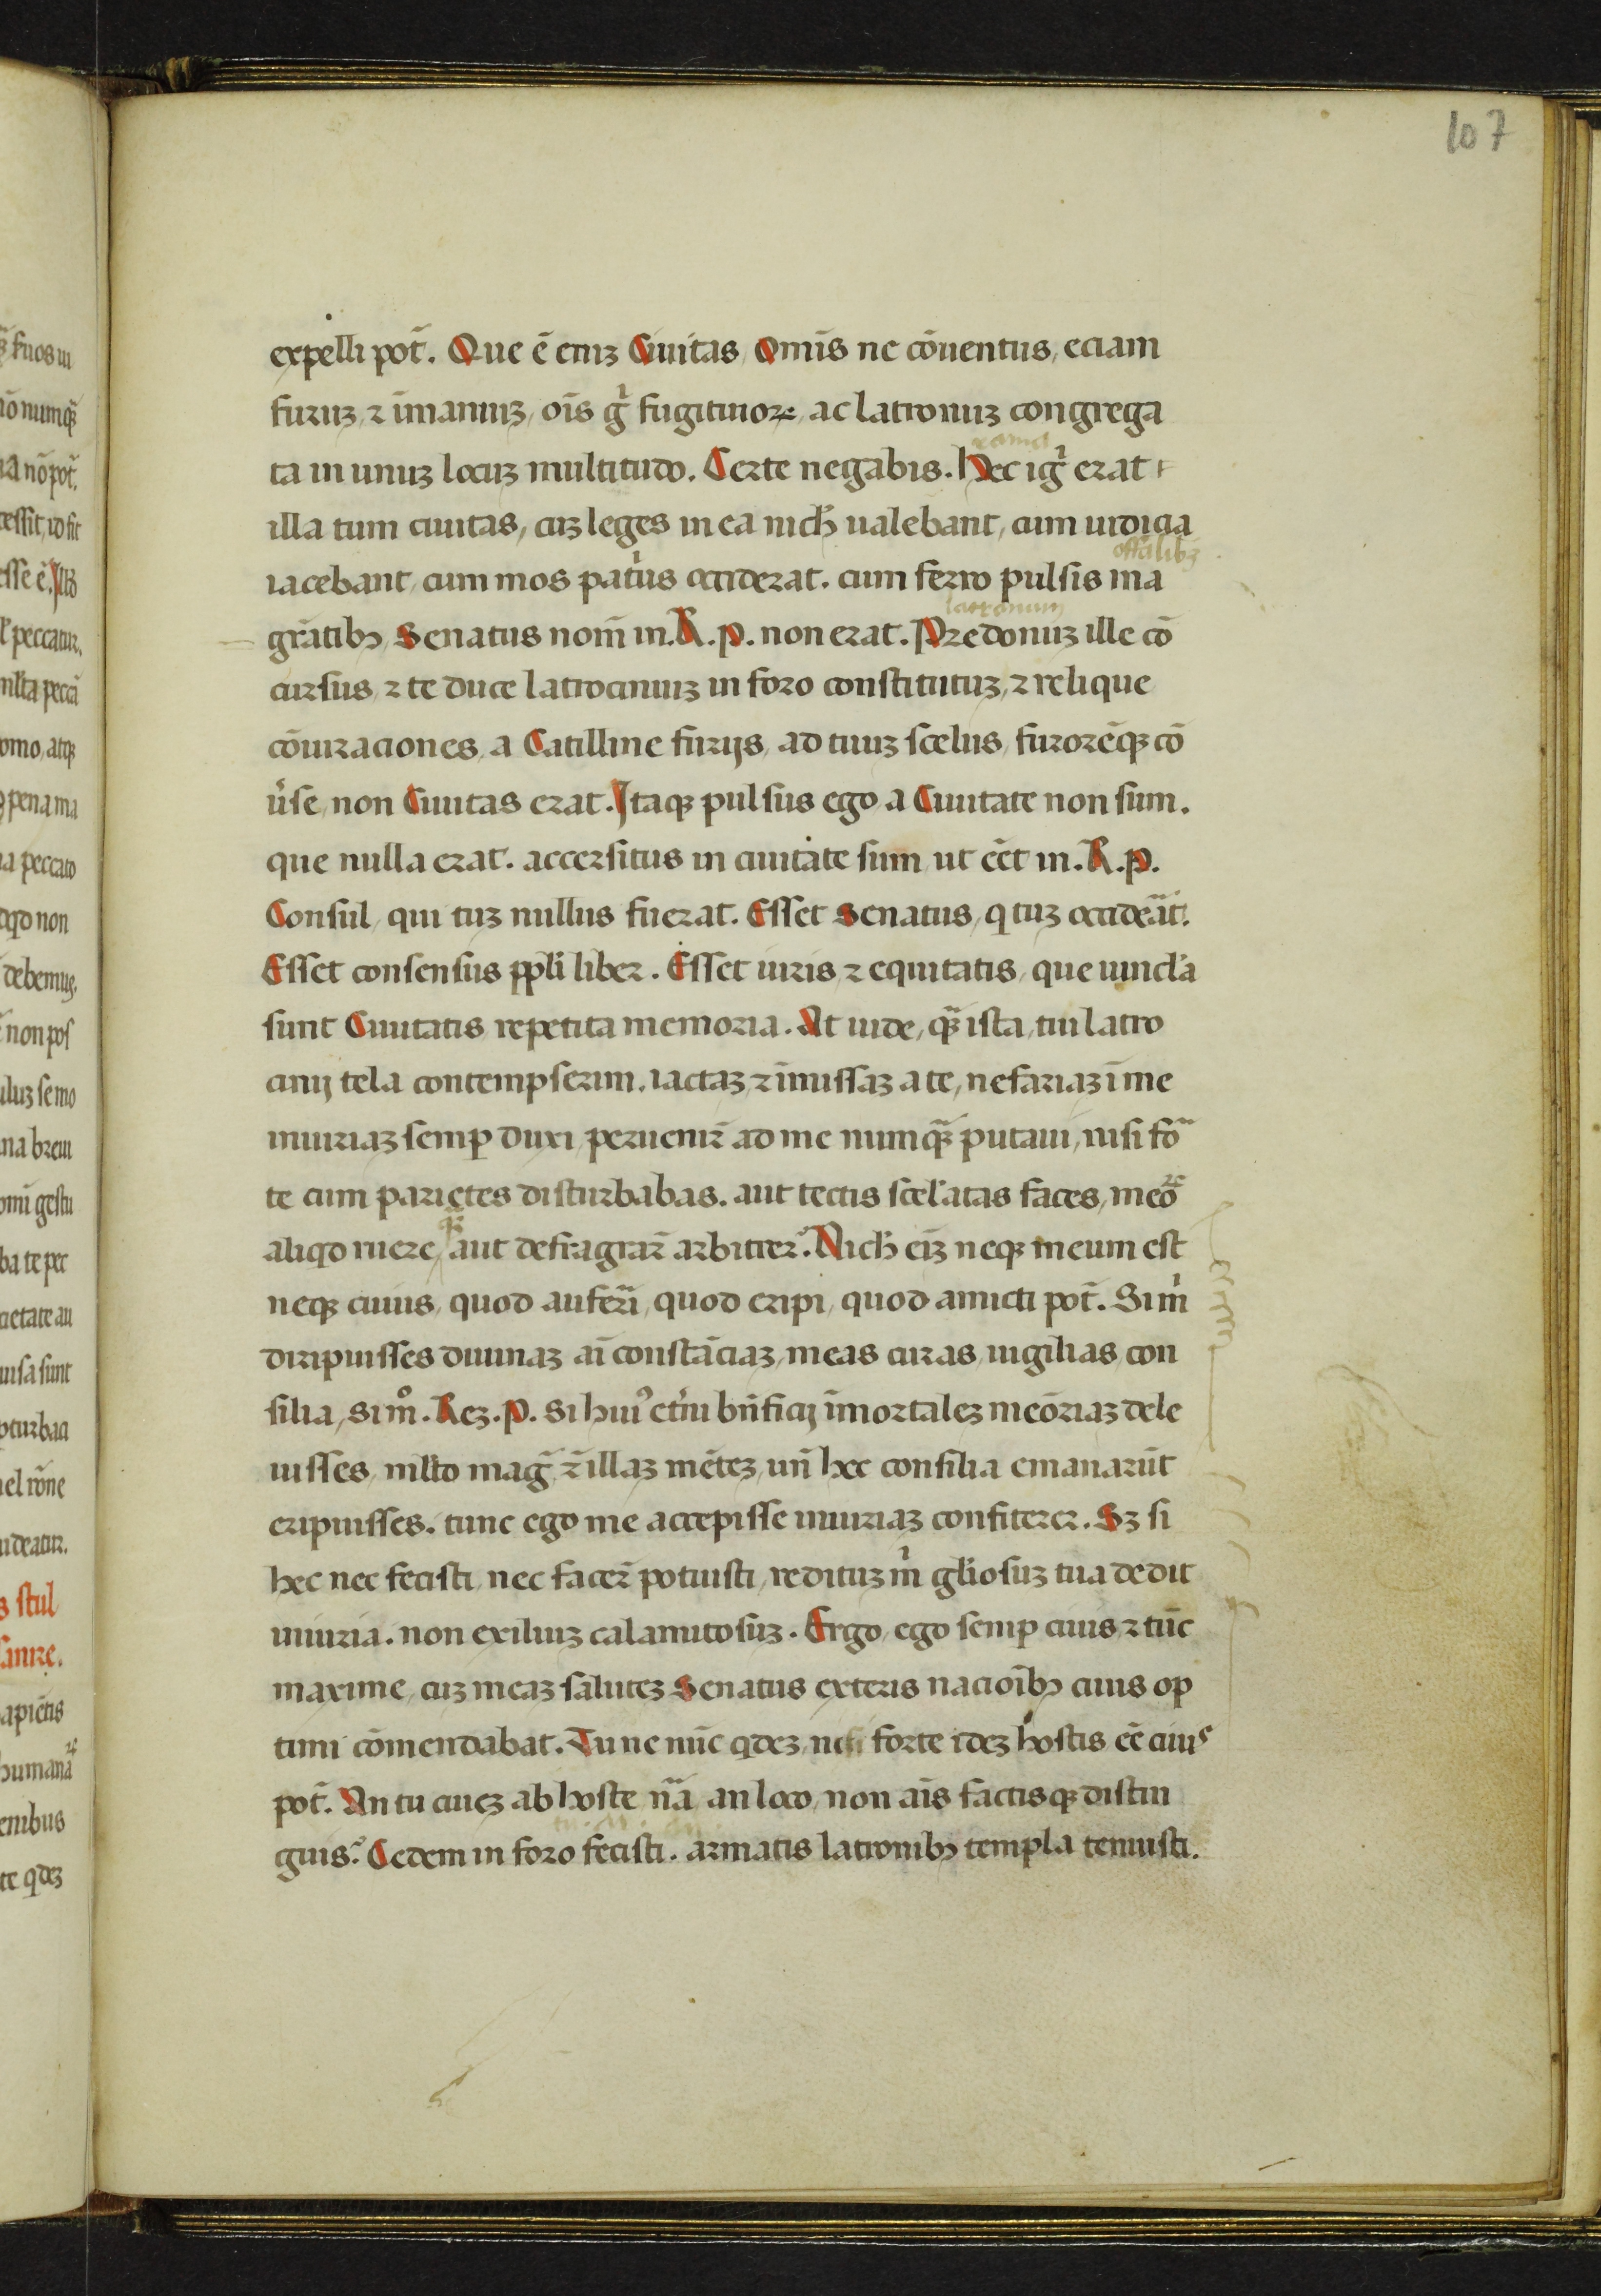 107
expelli pot̄. Que ē eniz Ciuitas, Omīs ne cōuentus, eciam
furuz, ⁊ īmaniuz, oīs gͥ fugitiuoꝝ, ac latronuz congrega
ta in unuz locuz multitudo. Certe negabis. Hec igͥ erat
illa tum ciuitas, cuz leges in ea nicħ ualebant, cum iudicia
offālibꝫ
iacebant, cum mos patͥus occiderat. cum ferro pulsis ma
latronum
grātibꝫ Senatus nom̄ in. R. p. non erat. Predonuz ille cō
cursus, ⁊ te duce latrociniuz in foro constitutuz, ⁊ relique
cōiuraciones, a Catilline furijs, ad tuuz scelus, furorēqꝫ cō
ūse, non Ciuitas erat. Itaqꝫ pulsus ego a Ciuitate non sum.
que nulla erat. accersitus in ciuitate sum, ut eēt in. R. p.
Consul, qui tuz nullus fuerat. Esset Senatus, q tuz occideāt.
Esset consensus ppli liber. Esset iuris, ⁊ equitatis, que uincl'a
sunt Ciuitatis repetita memoria. At uide, qꝫ̄ ista, tui latro
cinij tela contempserim. iactaz, ⁊ īmissaz a te, nefariaz ī me
iniuriaz semꝑ duxi, peruenir̄ ad me numqꝫ̄ putaui, nisi for̄
te cum parietes disturbabas. aut tectis scel'atas faces, meoꝝ
aliqd ruere, aut defragrar̄ arbitrer̉. Nicħ eīz neqꝫ meum est
neqꝫ ciuius, quod auferī, quod eripi, quod amicti pot̄. Si mͥ
diripuisses diuinaz aī constāciaz, meas curas, uigilias, con
silia, Si mͦ. Rez. P. Si huiꝰ etͥni bn̄ficij īmortalez meōriaz dele
uisses, mlto magͥ, ⁊ illaz mētez, un̄ hec consilia emanarūt
eripuisses. tunc ego me accepisse iniuriaz confiterer. Sꝫ si
hec nec fecisti, nec facer̄ potuisti, redituz mͥ gliosuz tua dedit
iniuria. non exiliuz calamitosuz. Ergo, ego semꝑ ciuis, ⁊ tūc
maxime, cuz meaz salutez Senatus exteris nacioībꝫ ciuis op
timi cōmendabat. Tu ne nūc qdez, nisi forte idez hostis eē ciuis
pot̄. An tu ciuez ab hoste nā, an loco, non aīs factisqꝫ distin
guis.̉ Cedem in foro fecisti. armatis latronibꝫ templa tenuisti.